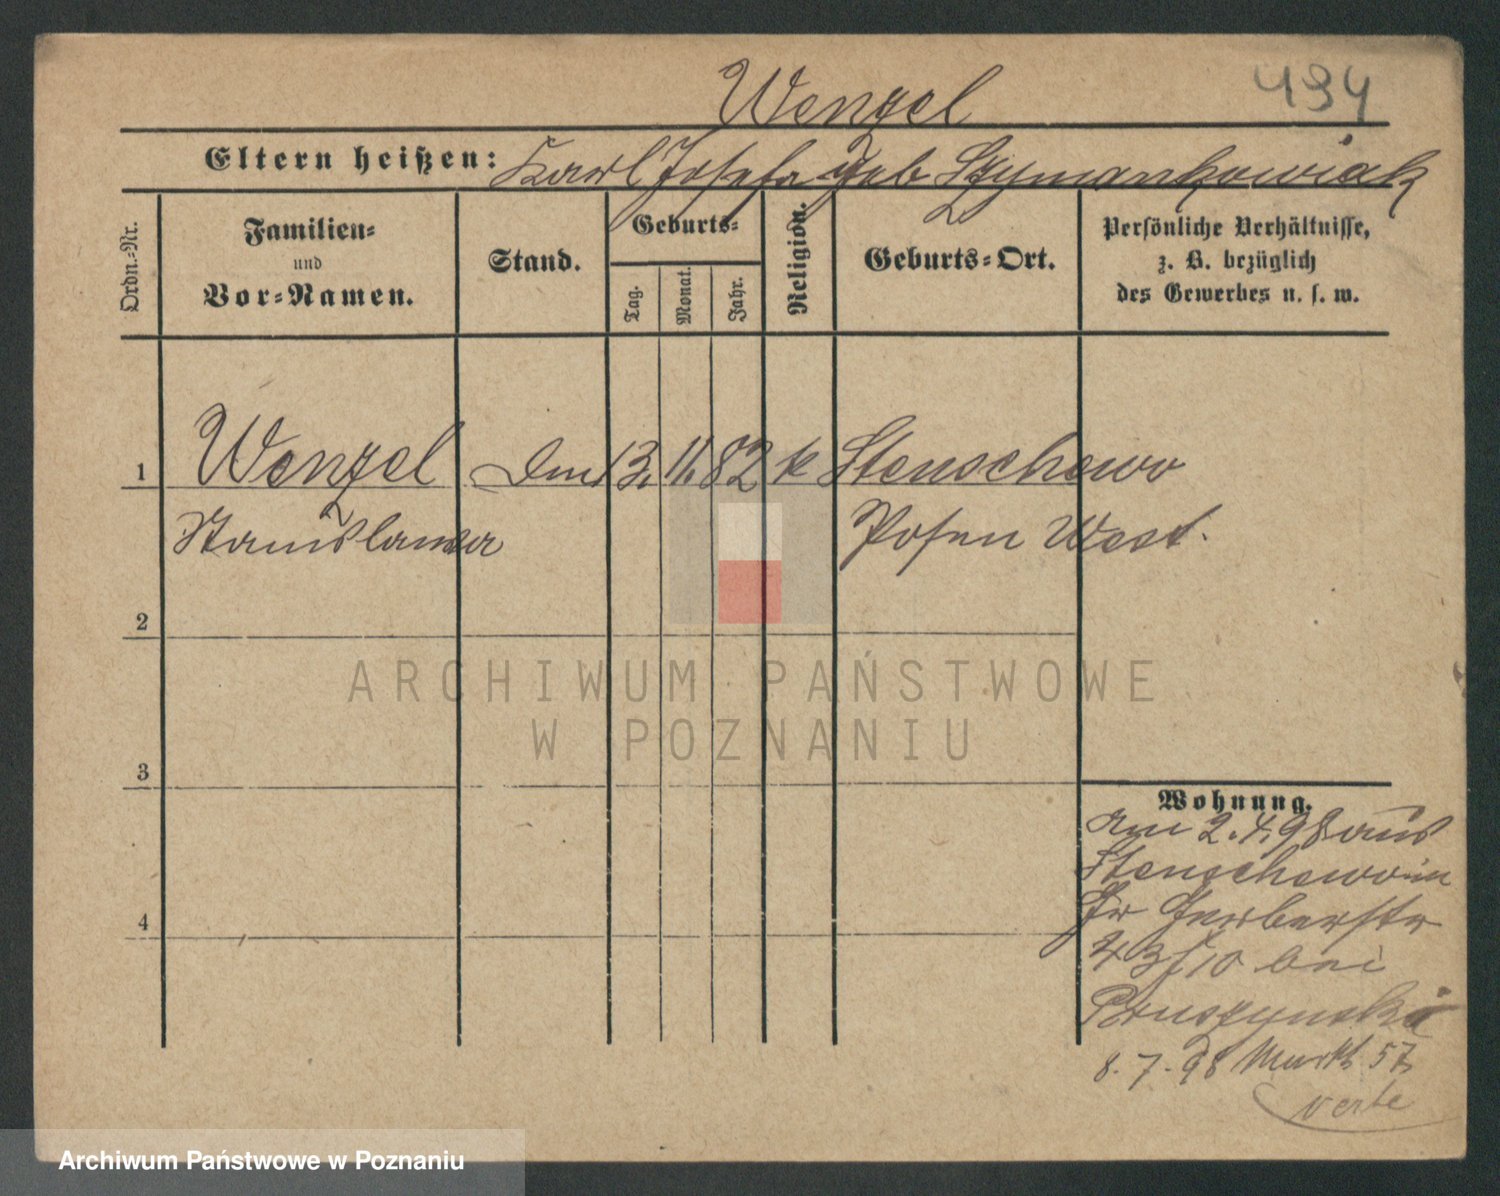 Wenzel
494
Eltern heißen: Karl Josefa geb Szymankowiak
Ordn.-Nr.
Familien-
und
Vor-Namen.
Stand.
Geburts-
Tag.
Monat.
Jahr.
Religion.
Geburts-Ort.
Persönliche Verhältnisse,
z. B. bezüglich
des Gewerbes u. s. w.
1 Wenzel 13. 11. 82 k Stenschewo
Stanislawa Posen West.
2
3
4
Wohnung.
am 2.4.98 aus
Stenschewo in
Gr Gerberstr
43 bei
Pruszynski
8.7.98 Markt 57
verte
ARCHIWUM PAŃSTWOWE
W POZNANIU
Archiwum Państwowe w Poznaniu